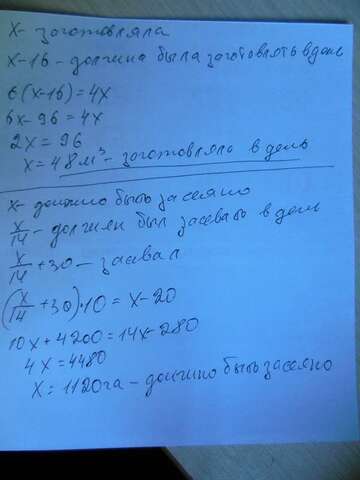 х - заготовляла
х-16 - должна была заготовлять в день
6(х-16)=4х
6х-96=4х
2х=96
х=48м³ - заготовляла в день
х - должно быть засеяно
х/14 - должен был засевать в день
х/14 +30 - засевал
(х/14 +30)·10 = х-20
10х+4200=14х-280
4х=4480
х=1120га - должно быть засеяно